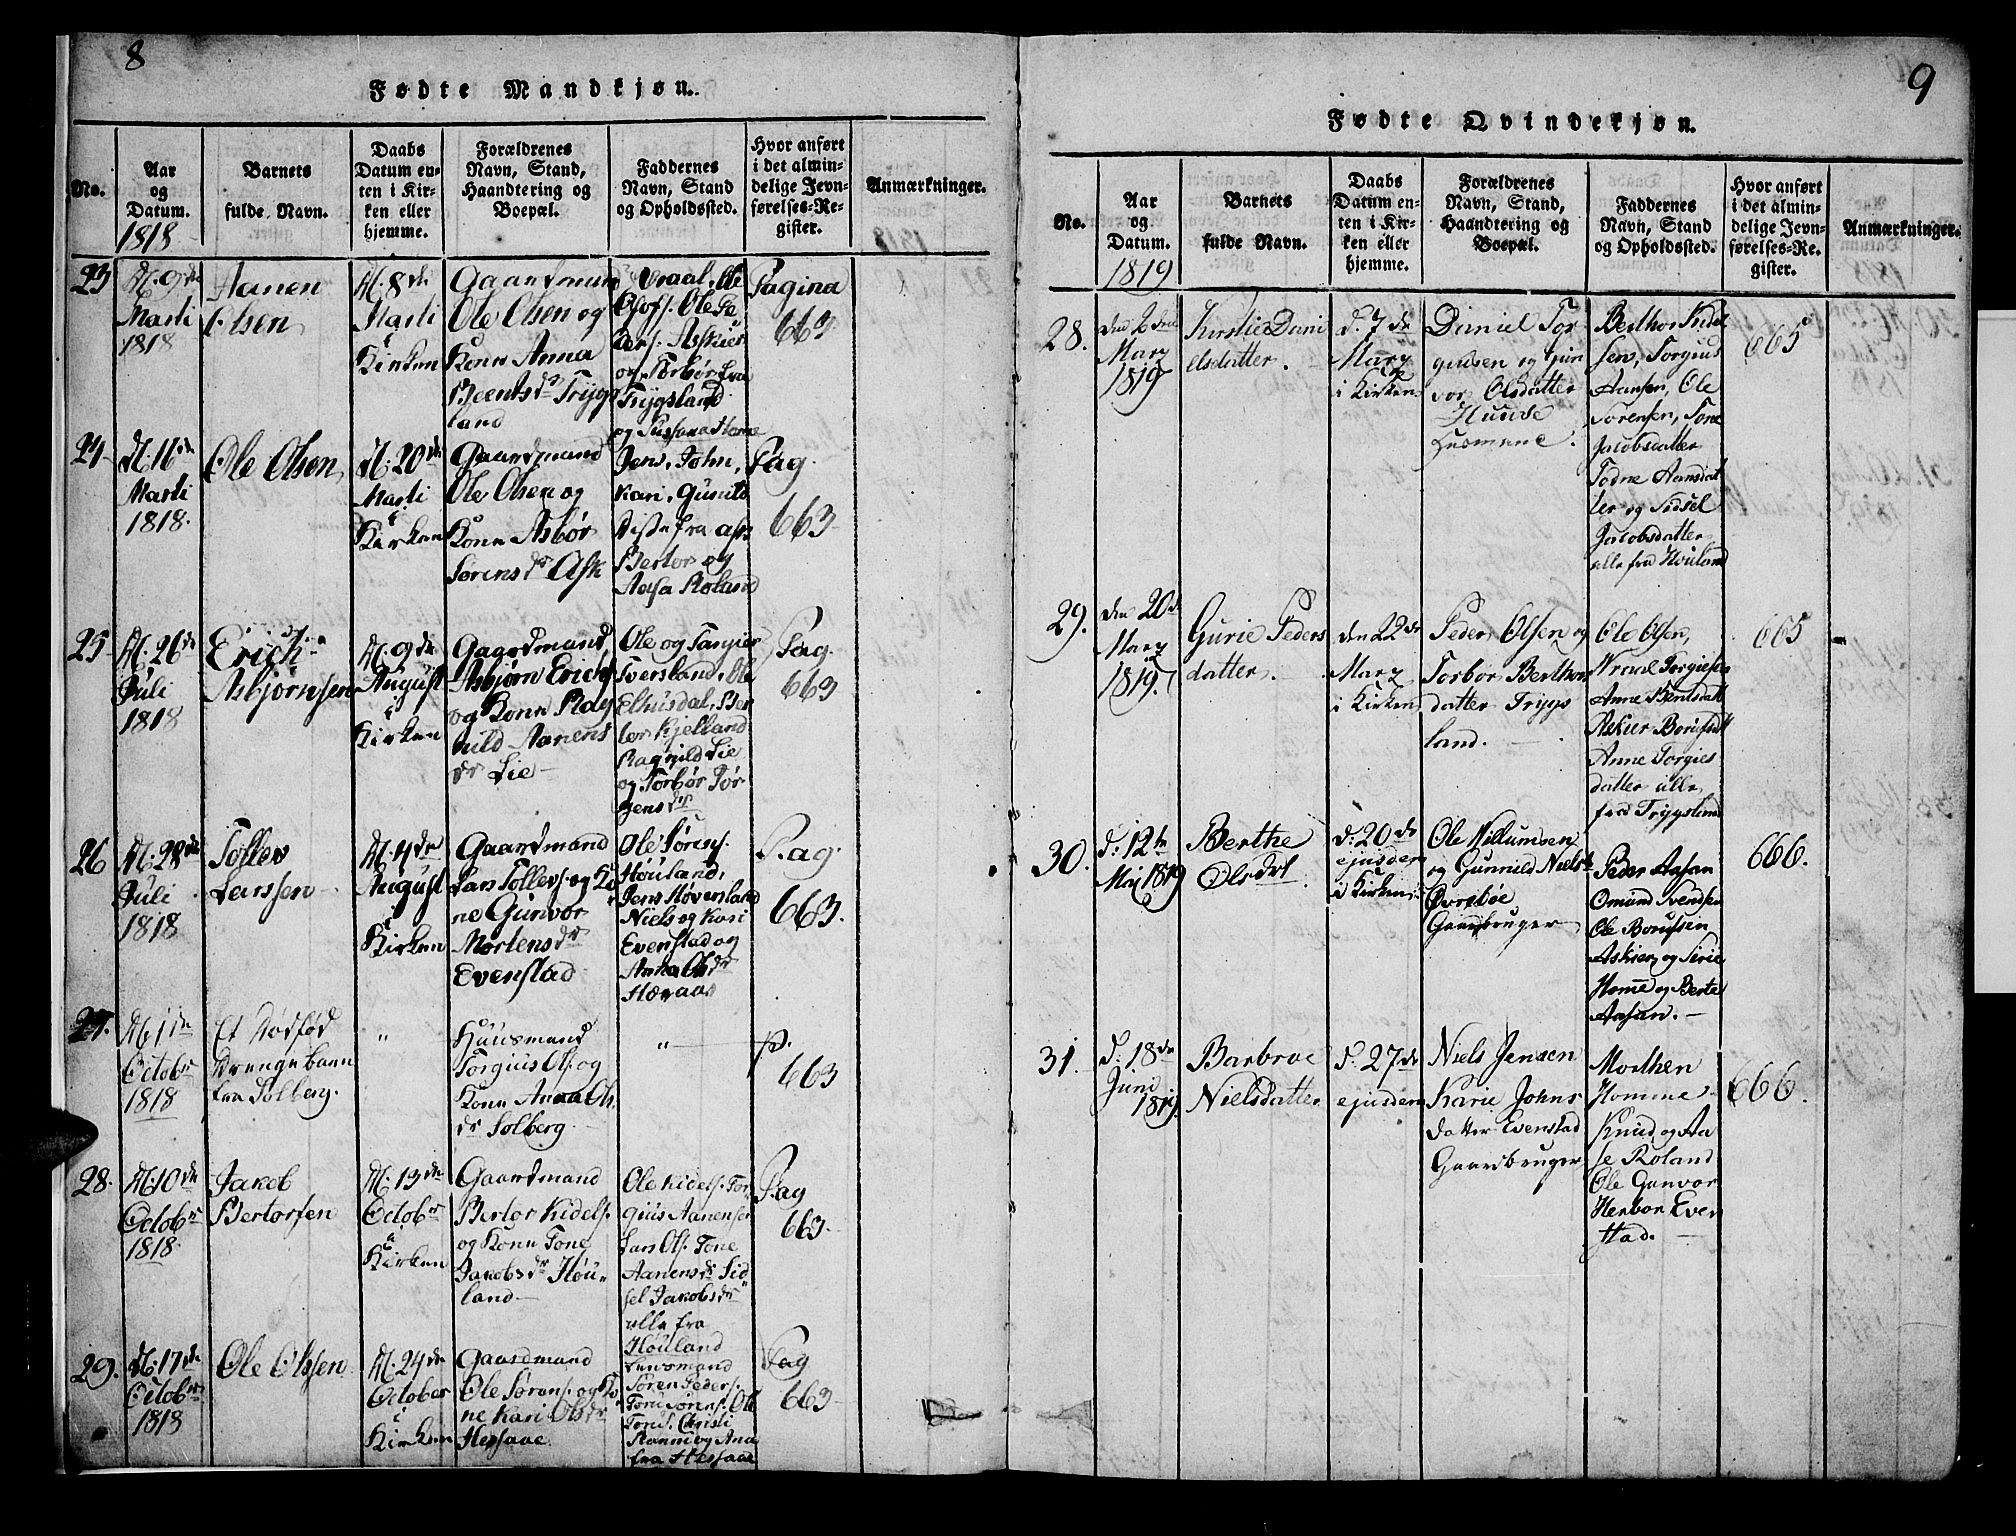 8
Fødte Mandkjøn.
No.
Aar
og
Datum.
1818
Barnets
fulde Navn.
Daabs
Datum en-
ten i Kir-
ken eller
hjemme.
Forældrenes
Navn, Stand,
Haandtering og
Boepæl.
Faddernes
Navn, Stand
og Opholdssted.
Hvor anført
i det almin-
delige Jevn-
førelses-Re-
gister.
Anmærkninger.
23
D. 9de
Marti
1818
Aanen
Olsen
D. 8de
Marti
i
Kirken
Gaardmand
Ole Olsen og
Kone Anna
Beentsdr Trygs
land
Vraal, Ole
Ole Pe
ders. Askier
og Torbør fra
Trygsland
og Sussana Home
Pagina
663
24
D. 16de
Marti
1818.
Ole Olsen
D. 20de
Marti
i
Kirken
Gaardmand
Ole Olsen og
Kone Asbør
Sørensdr Ask
Jens, John,
Kari, Gunild
Siste fra Ask
Bertor og
Aasa Roland
Pag.
663
25
D. 26de
Juli
1818
Erich
Asbjørnsen
D. 9de
August
i
Kirken
Gaardmand
Asbjørn Erichs
og Kone Rag
nild Aanens
dr Lie
Ole og Tangier
Sversland, Ole
Elhusdal, Ber
tor Kjelland
Ragnild Lie
og Torbør Tor
gensdr
Pag.
663
26
D. 28de
Juli
1818
Tollev
Larssen
D. 4de
August
i
Kirken
Gaardmand
Lars Tollevs. og Ko
ne Gunvor
Mortensdr
Evenstad
Ole Sørens.
Høuland,
Jens Høversland
Niels og Kari
Evenstad og
Anna Olsdr
Heraas
Pag.
663.
27.
D. 1de
Octobr
1818
Et Dødfød
Drengebarn
fra Solberg.
"
Huusmand
Torgius Ols. og
Kone Anna Ols
dr Solberg
"
p.
663
28.
D. 10de
Octobr
1818.
Jakob
Bertorsen
D. 13de
Octobr
i
Kirken
Gaardmand
Bertor Kidels.
og Kone Tone
Jakobsdr Høu-
land
Ole Kidels. Tor
gius Aanensen
Lars Ols. Tone
Aanensdr Sid
sel Jakobsdr
alle fra
Høuland
Pag
663.
29.
D. 17de
Octobr
1818
Ole Olssen
D. 24de
October
i
Kirken
Gaardmand
Ole Sørens. og Ko
ne Kari Olsdr
Hessaae
Lensmand
Søren Peders.
Tone Sørens. Ole
Tond. Christi
Ranni og Ana
fra Hessaae
Pag
663
9
Fødte Qvindekjøn.
No.
Aar
og
Datum.
1819
Barnets
fulde Navn.
Daabs
Datum en-
ten i Kir-
ken eller
hjemme.
Forældrenes
Navn, Stand,
Haandtering og
Boepæl.
Faddernes
Navn, Stand
og Opholdssted.
Hvor anført
i det almin-
delige Jevn-
førelses-Re-
gister.
Anmærkninger.
28.
den 2den
Marz
1819
Kirstie Dani
elsdatter.
d. 7de
Marz
i Kirken
Daniel Tor
giusen og Gun
vor Olsdatter
Huusmand.
Berthor Kidel
sen, Torgius
Aansen, Ole
Sørensen, Tone
Jacobsdatter
Todne Aansdat
ter og Sidsel
Jacobsdatter
alle fra Houland
665
29.
den 20de
Marz
1819.
Gurie Peders
datter.
den 22de
Marz
i Kirken
Peder Olsen og
Torbor Berthor
datter Trygs
land.
Ole Olsen,
Wraal Torgiesen
Anne Bentsdatt
Askier Borufsdt
Anne Torgies
datter alle
fra Trygsland
665
30.
d. 12te
Maj 1819
Berthe
Olsdat.
d. 20de
ejusdem
i Kirken
Ole Nillumsen
og Gunnild Nielsd
Øvrebøe
Gaardbruger
Peder Aasan
Omund Svendsen
Ole Borufsen
Askier og Sirie
Homme og Berte
Aasan.
666.
31.
d. 18de
Juni
1819.
Barbroe
Nielsdatter
d. 27de
ejusdem
Niels Jensen
Karie Johns
datter Evenstad
Gaardbruger
Morthen
Homme
Knud og Aa
se Roland
Ole Gunvor
Herbor Even
stad.
666.